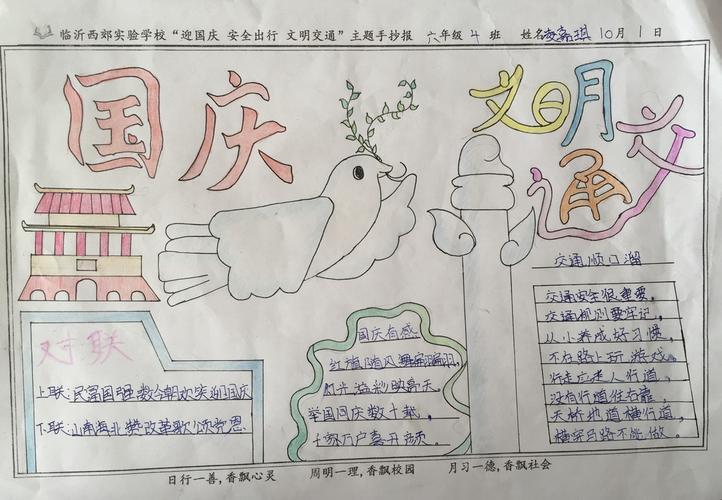 临沂西郊实验学校“迎国庆 安全出行 文明交通”主题手抄报 六年级4班 姓名 嘉琪 10月1日
国庆
文明交通
对联
上联:民富国强数今朝欢笑迎国庆
下联:山南海北赞改革歌颂党恩
国庆有感
红旗随风舞翩翩,
灯光溢彩映亮天。
举国同庆数十载,
千家万户喜开颜。
交通顺口溜
交通安全很重要,
交通规则要牢记,
从小养成好习惯,
不在路上玩游戏。
行走应走人行道,
没有行道往右靠,
天桥地道横行道,
横穿马路不能做。
日行一善,香飘心灵 周明一理,香飘校园 月习一德,香飘社会